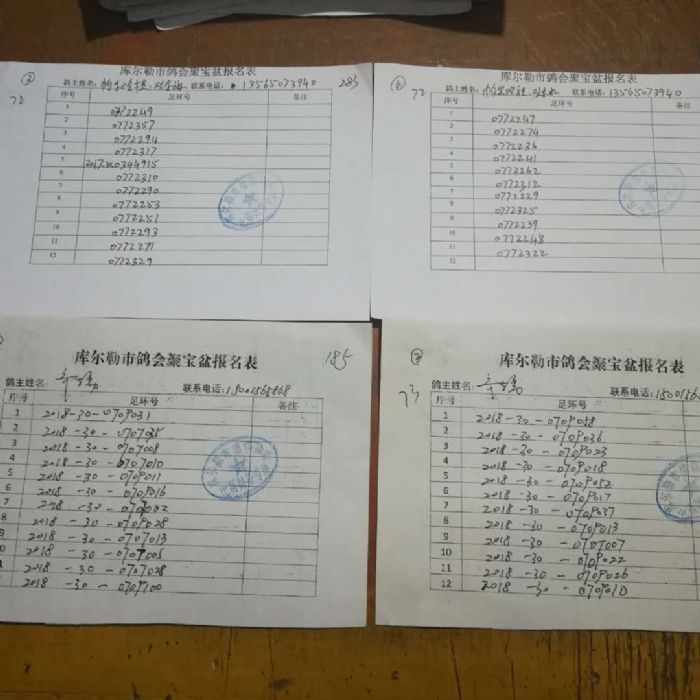 库尔勒市鸽会聚宝盆报名表
鸽主姓名: 联系电话: 13565073940 283
72
序号 足环号 备注
1 0772249
2 0772357
3 0772294
4 0772317
5 2017-320344915
6 0772310
7 0772290
8 0772253
9 0772251
10 0772293
11 0772271
12 0772329
库尔勒市鸽会聚宝盆报名表
鸽主姓名: 联系电话: 13565073940
72
序号 足环号 备注
1 0772247
2 0772274
3 0772236
4 0772241
5 0772262
6 0772312
7 0772229
8 0772325
9 0772239
10 0772248
11 0772322
12
库尔勒市鸽会聚宝盆报名表
185
鸽主姓名: 联系电话:
序号 足环号 备注
1 2018-30-0709031
2 2018-30-
3 2018-30-0707008
4 2018-30-0707010
5 2018-30-0709011
6 2018-30-0709016
7 2018-30-
8 2018-30-0709028
9 2018-30-0707013
10 2018-30-0707005
11 2018-30-0707028
2018-30-0709100
库尔勒市鸽会聚宝盆报名表
鸽主姓名: 联系电话:
73
序号 足环号 备注
1 2018-30-0709058
2 2018-30-0709036
3 2018-30-0709023
4 2018-30-0709018
5 2018-30-0709052
6 2018-30-0709017
7 2018-30-0709037
8 2018-30-0709013
9 2018-30-0707007
10 2018-30-0709022
11 2018-30-0709026
12 2018-30-0709010